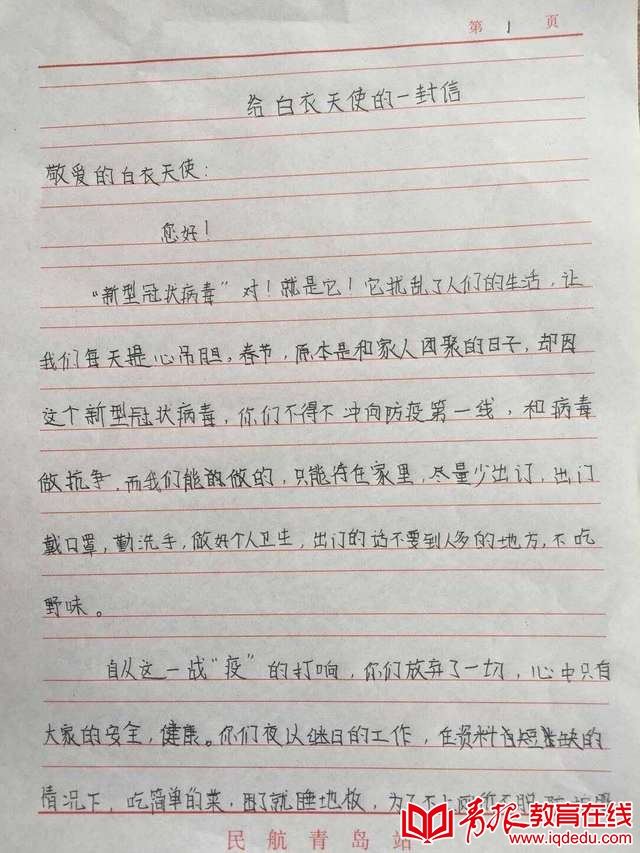 第 1 页
给白衣天使的一封信
敬爱的白衣天使：
您好！
“新型冠状病毒”对！就是它！它扰乱了人们的生活，让
我们每天提心吊胆。春节，原本是和家人团聚的日子，却因
这个新型冠状病毒，你们不得不冲向防疫第一线，和病毒
做抗争，而我们能做的，只能待在家里，尽量少出门，出门
戴口罩，勤洗手，做好个人卫生，出门的话不要到人多的地方，不吃
野味。
自从这一战“疫”的打响，你们放弃了一切，心中只有
大家的安全，健康。你们夜以继日的工作，在资料短缺的
情况下，吃简单的菜，困了就睡地板，为了不上厕所不脱
民航青岛站
青报教育在线
www.iqdedu.com